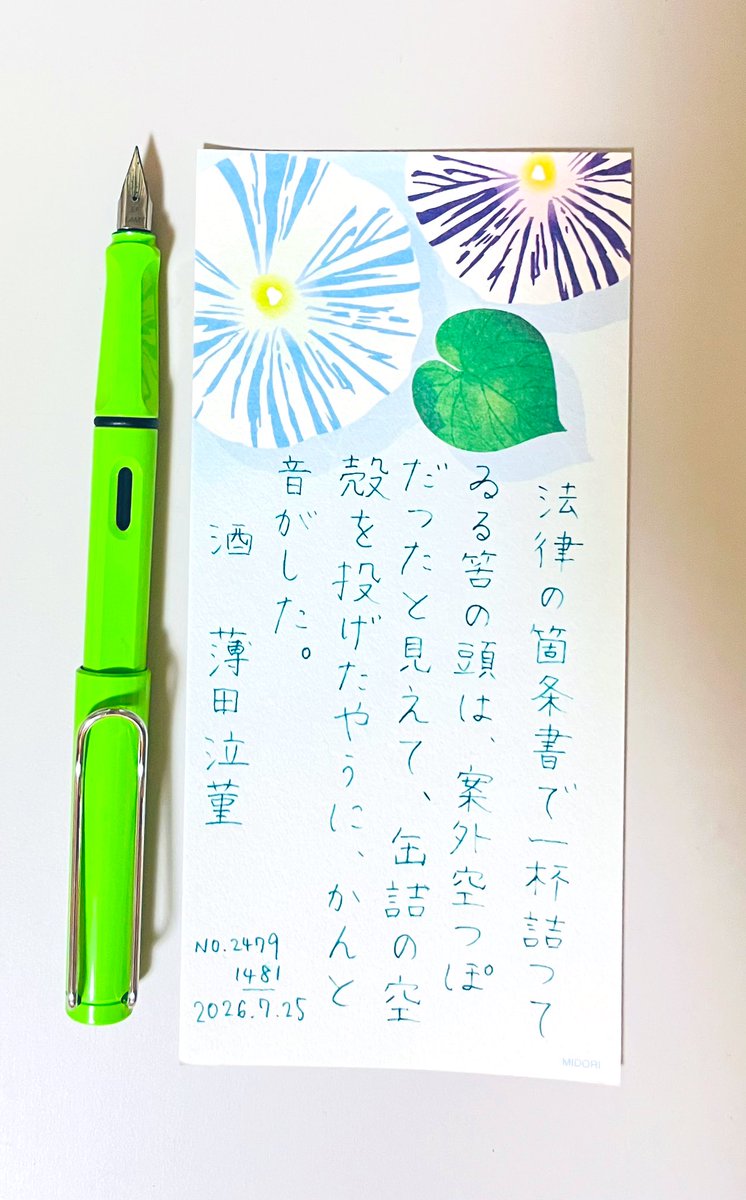 法律の箇条書で一杯詰つて
ゐる筈の頭は、案外空つぽ
だつたと見えて、缶詰の空
殻を投げたやうに、かんと
音がした。
酒　薄田泣菫
NO.2479
1481
2026.7.25
MIDORI